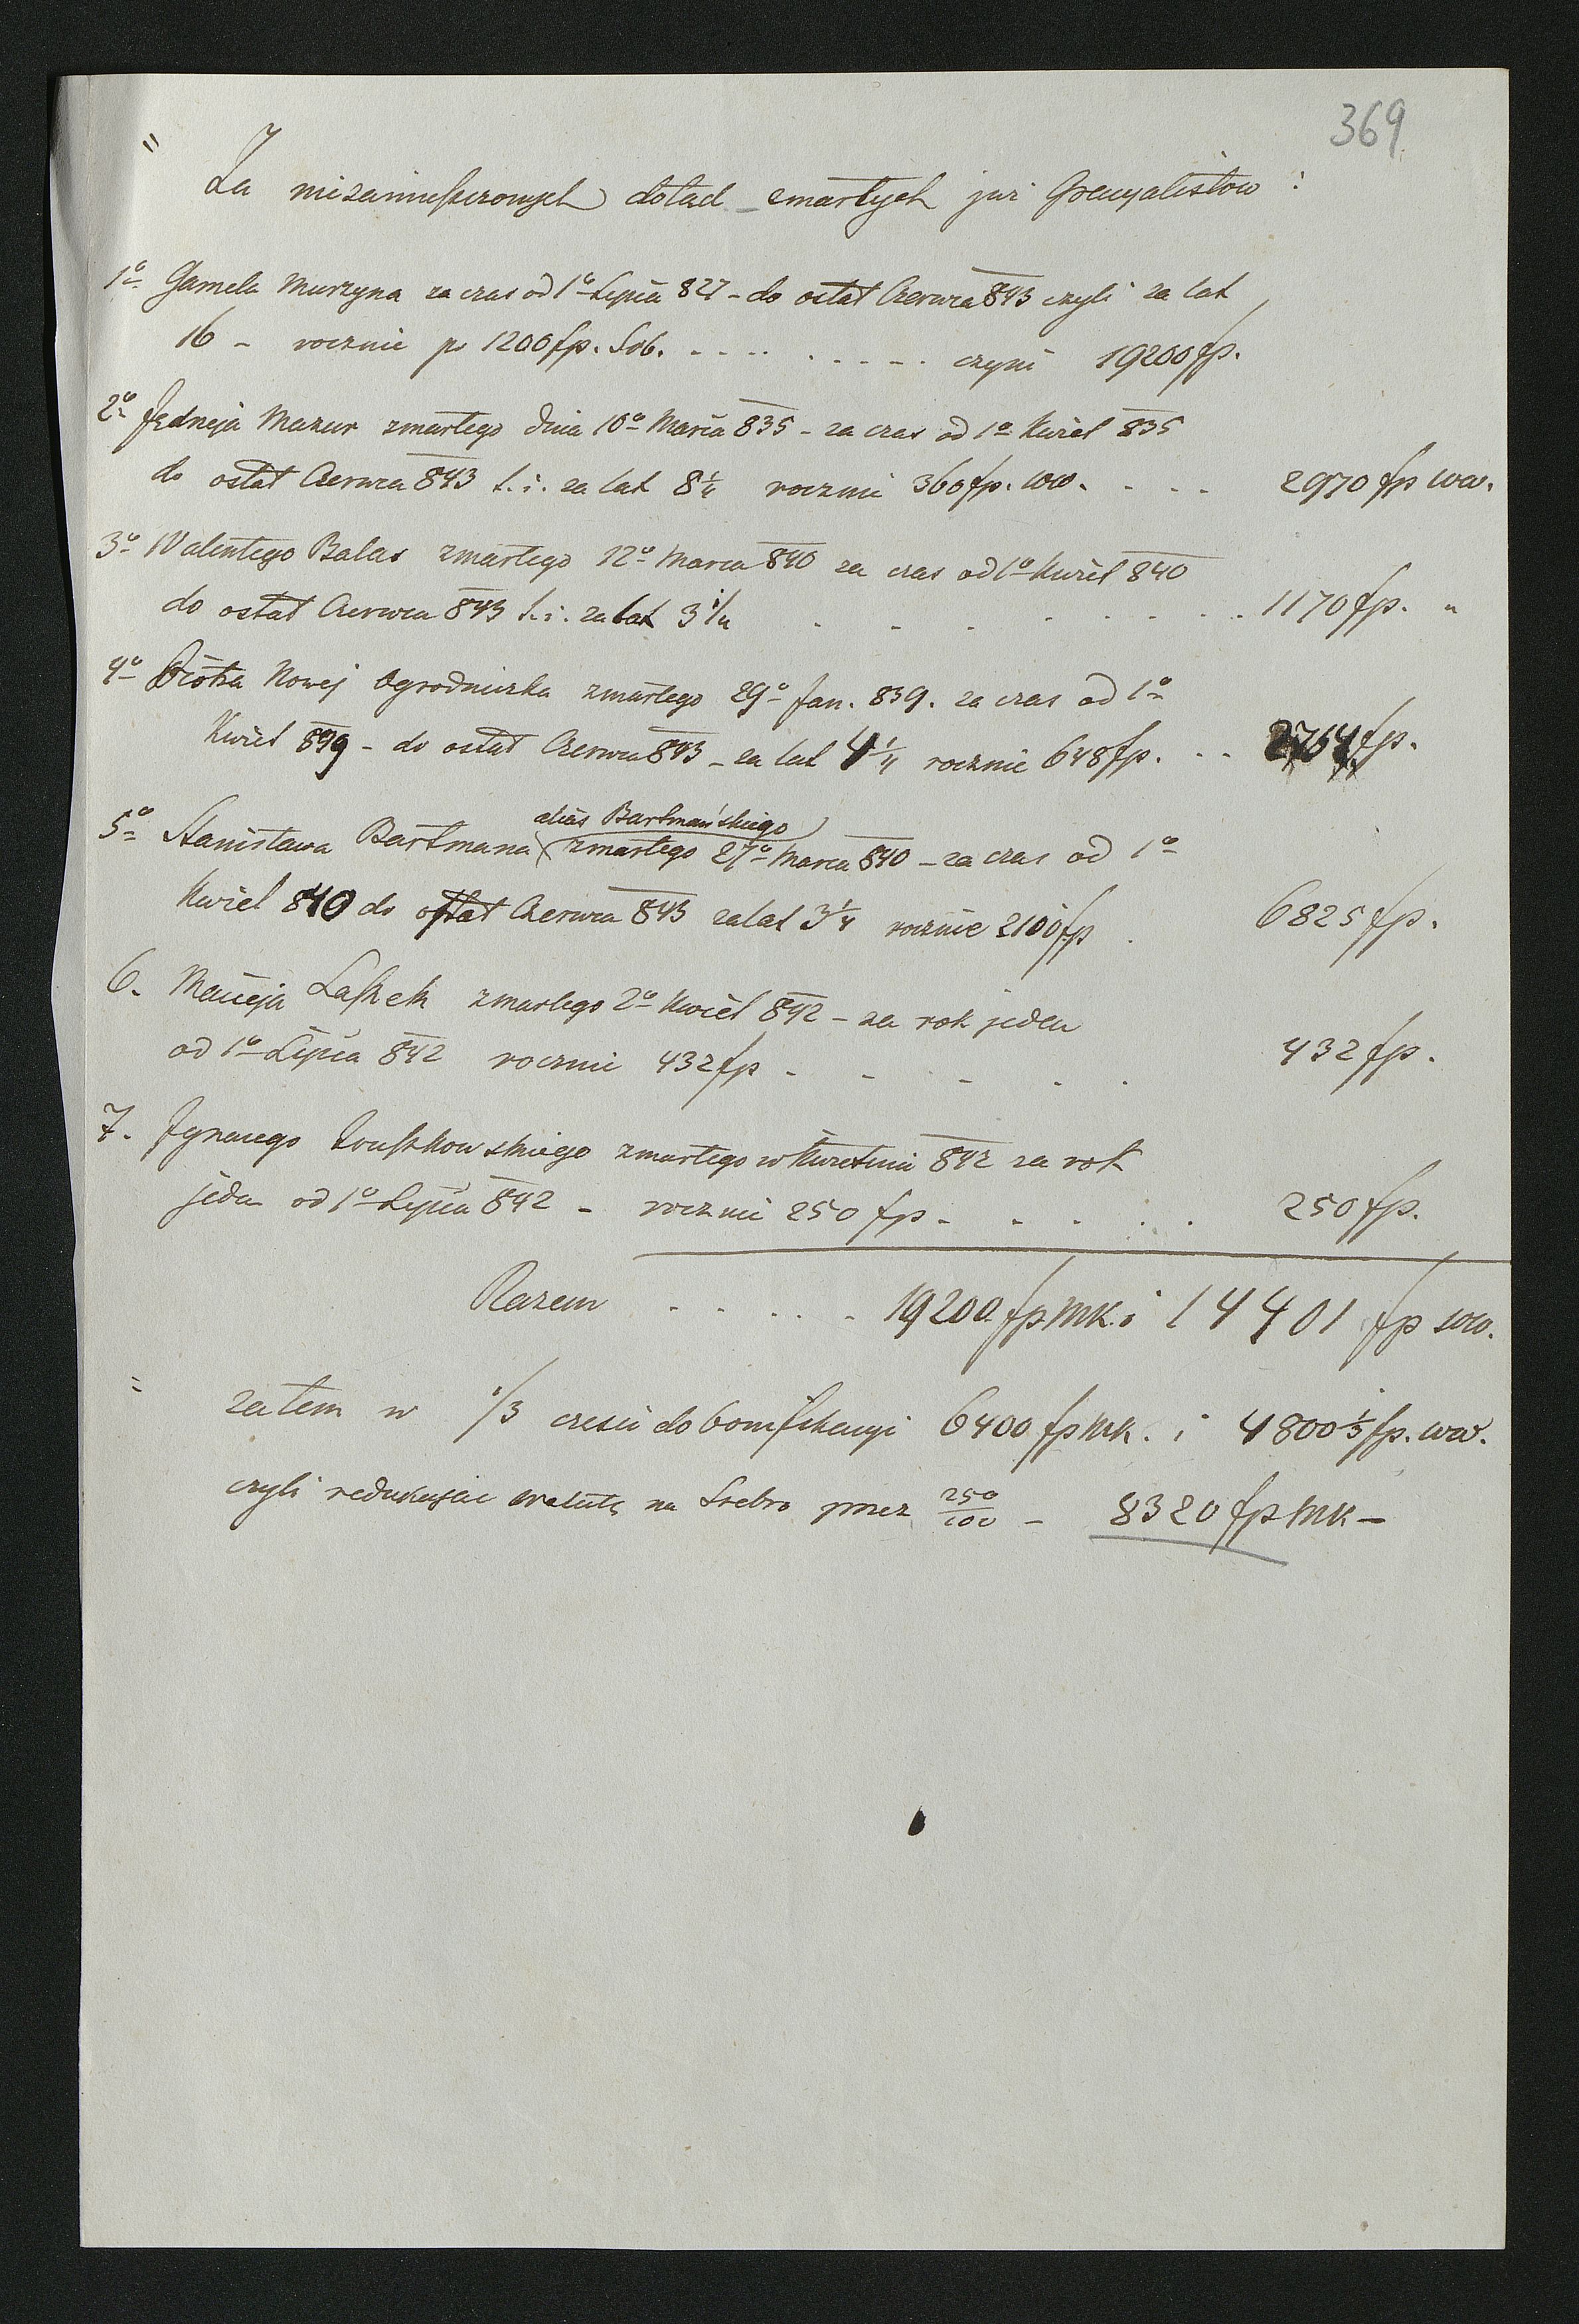 369
" Za niezainupkrowych dotad zmartych już Gracyalistow :
1o Gamela Murzyna za czas od 1o Lipca 827 - do ostat Czerwca 843 czyli za lat
16 - rocznie po 1200 fp. Srb. - - - - - - - - czyni 19200 fp.
2o Jędrzeja Mazur zmarłego dnia 10o Marca 835 - za czas od 1o Kwiet 835
do ostat Czerwca 843 t. i. za lat 8 1/4 rocznie 360 fp. ww. - - - 2970 fp ww.
3o Walentego Balas zmarłego 12o Marca 840 za czas od 1o Kwiet 840
do ostat Czerwca 843 t. i. za lat 3 1/4 - - - - - - - 1170 fp. "
4o Piotra Nowej Ogrodniczka zmarłego 29o Jan. 839. za czas od 1o
Kwiet 839 - do ostat Czerwca 843 - za lat 4 1/4 rocznie 648 fp. - - 2764 fp.
alias Bartmańskiego
5o Stanisława Bartmana zmarłego 27o Marca 840 - za czas od 1o
Kwiet 840 do ostat Czerwca 843 za lat 3 1/4 rocznie 2100 fp . 6825 fp.
6. Macieja Laszek zmarłego 2o Kwiet 842 - za rok jeden
od 1o Lipca 842 rocznie 432 fp - - - - . 432 fp.
7. Ignacego zmarłego w Kwietniu 842 za rok
jeden od 1o Lipca 842 - rocznie 250 fp - - - - . 250 fp.
Razem - - - - - 19200 fp MK. i 14401 fp ww.
= zatem w 1/3 czesci do bonifikacyi 6400 fp Mk. i 4800 1/3 fp. ww.
czyli redukujac walutę na Srebro przez 250/100 - 8320 fp MK -